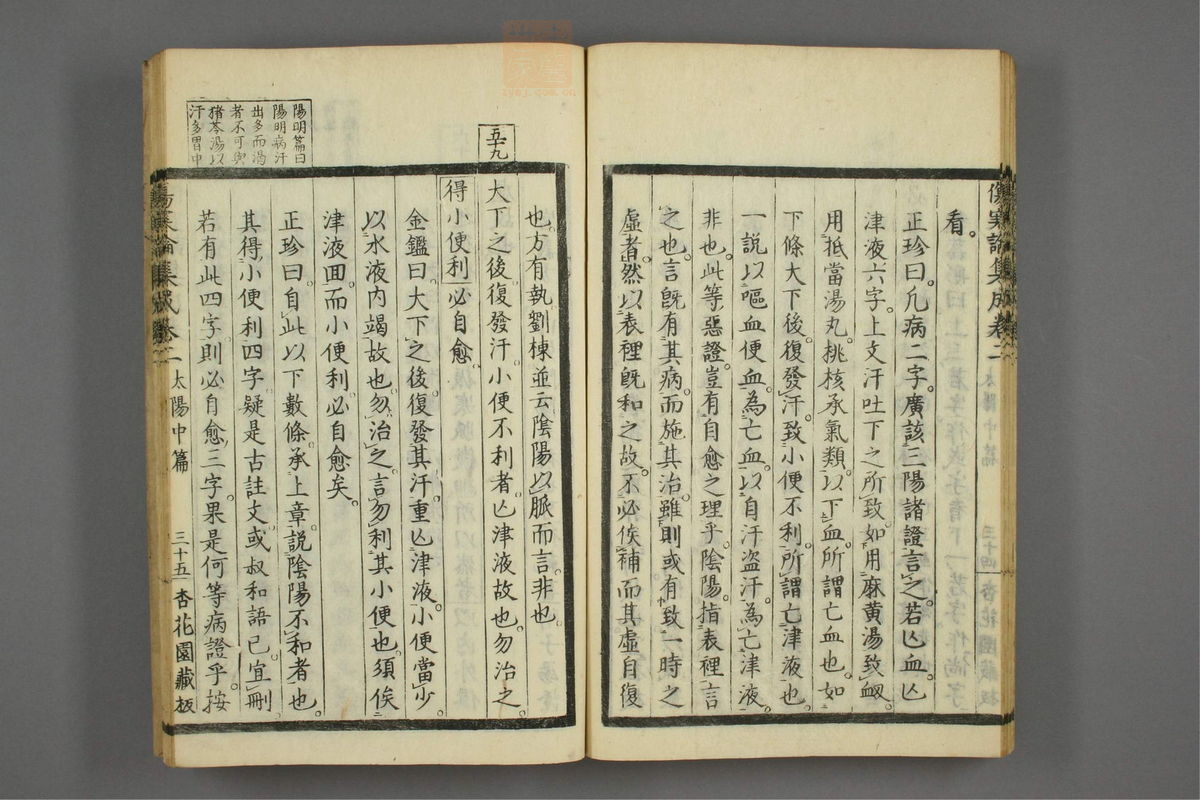 傷寒論集成卷二
看。
正珍曰。凡病二字。廣該三陽諸證言之。若亾血。亾
津液。六字。上文汗吐下之所致。如用麻黃湯致衂。
用抵當湯丸。桃核承氣類。以下血。所謂亡血也。如
下條大下後。復發汗。致小便不利。所謂亡津液也。
一說以嘔血便血。為亡血。以自汗盗汗。為亡津液。
非也。此等惡證。豈有自愈之理乎。陰陽。指表裡言
之也。言旣有其病。而施其治。雖則或有致一時之
虛者。然以表裡旣和之故。不必俟補而其虛自復
也。方有執劉棟並云陰陽以脈而言。非也。
五十九
大下之後。復發汗。小便不利者。亾津液故也。勿治之。
得小便利。必自愈。
金鑑曰。大下之後。復發其汗。重亾津液。小便當少。
以水液內竭故也。勿治之。言勿利其小便也。須俟
津液回。而小便利。必自愈矣。
正珍曰。自此以下數條。承上章說陰陽不和者也。
其得小便利四字。疑是古註文。或叔和語已。宜刪。
若有此四字。則必自愈三字。果是何等病證乎。按
陽明篇曰
陽明病汗
出多而渴
者不可與
猪苓湯以
汗多胃中
傷寒論集成卷二 太陽中篇 三十五 杏花園藏板